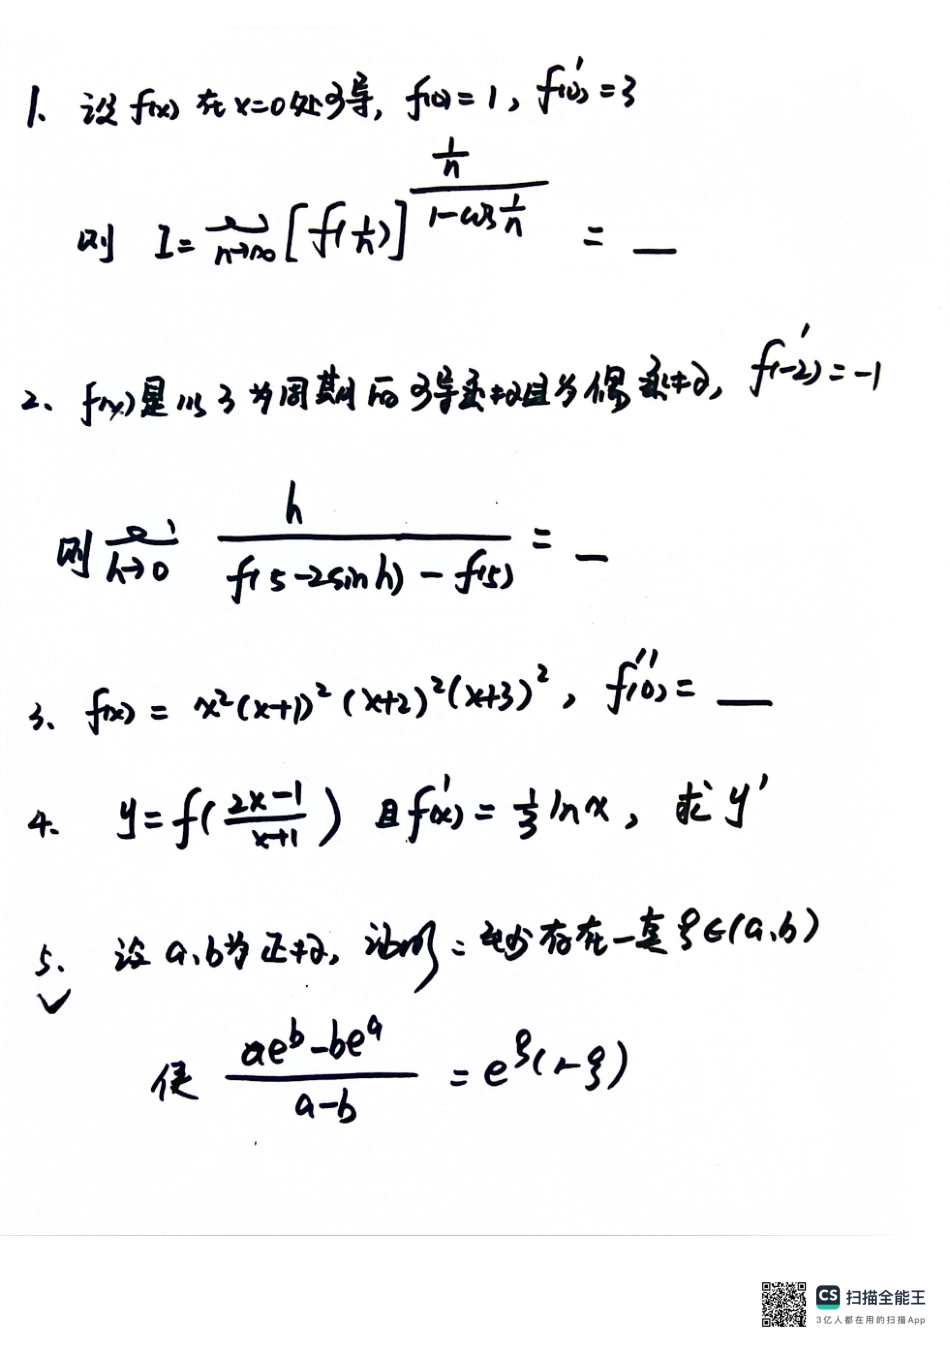 1. 设 f(x) 在 x=0 处可导, f(0)=1, f'(0)=3
则 I = lim n→∞ [f(1/n)]^((1/n)/(1-cos 1/n)) = __
2. f(x) 是以 3 为周期的可导函数且为偶函数, f'(-2)=-1
则 lim h→0 h/(f(5-2sin h) - f(5)) = __
3. f(x) = x²(x+1)²(x+2)²(x+3)², f''(0) = __
4. y=f((2x-1)/(x+1)) 且 f'(x) = 1/3 ln x, 求 y'
5. 设 a、b 为正数, 证明: 至少存在一点 ξ∈(a、b)
使 (ae^b - be^a)/(a-b) = e^ξ(1-ξ)
CS 扫描全能王
3亿人都在用的扫描App